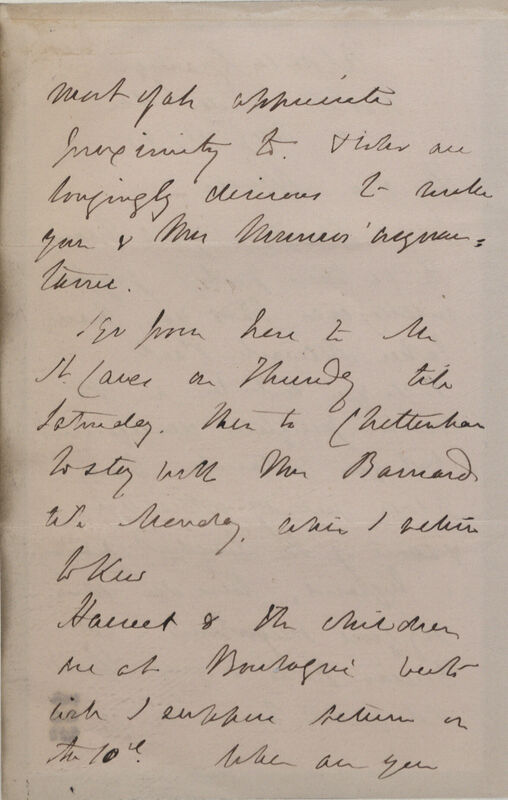 most of all appreciate
proximity to. & who are
longingly desirous to make
you & Mrs acquain=
tance.
I go from here to Mr
St. on Thursday till
Saturday. then to Cheltenham
to stay with Mrs Barnard
till Monday, when I return
to Kew
Harriet & the children
are at Boulogne but
will I suppose return on
the 10th. When are you